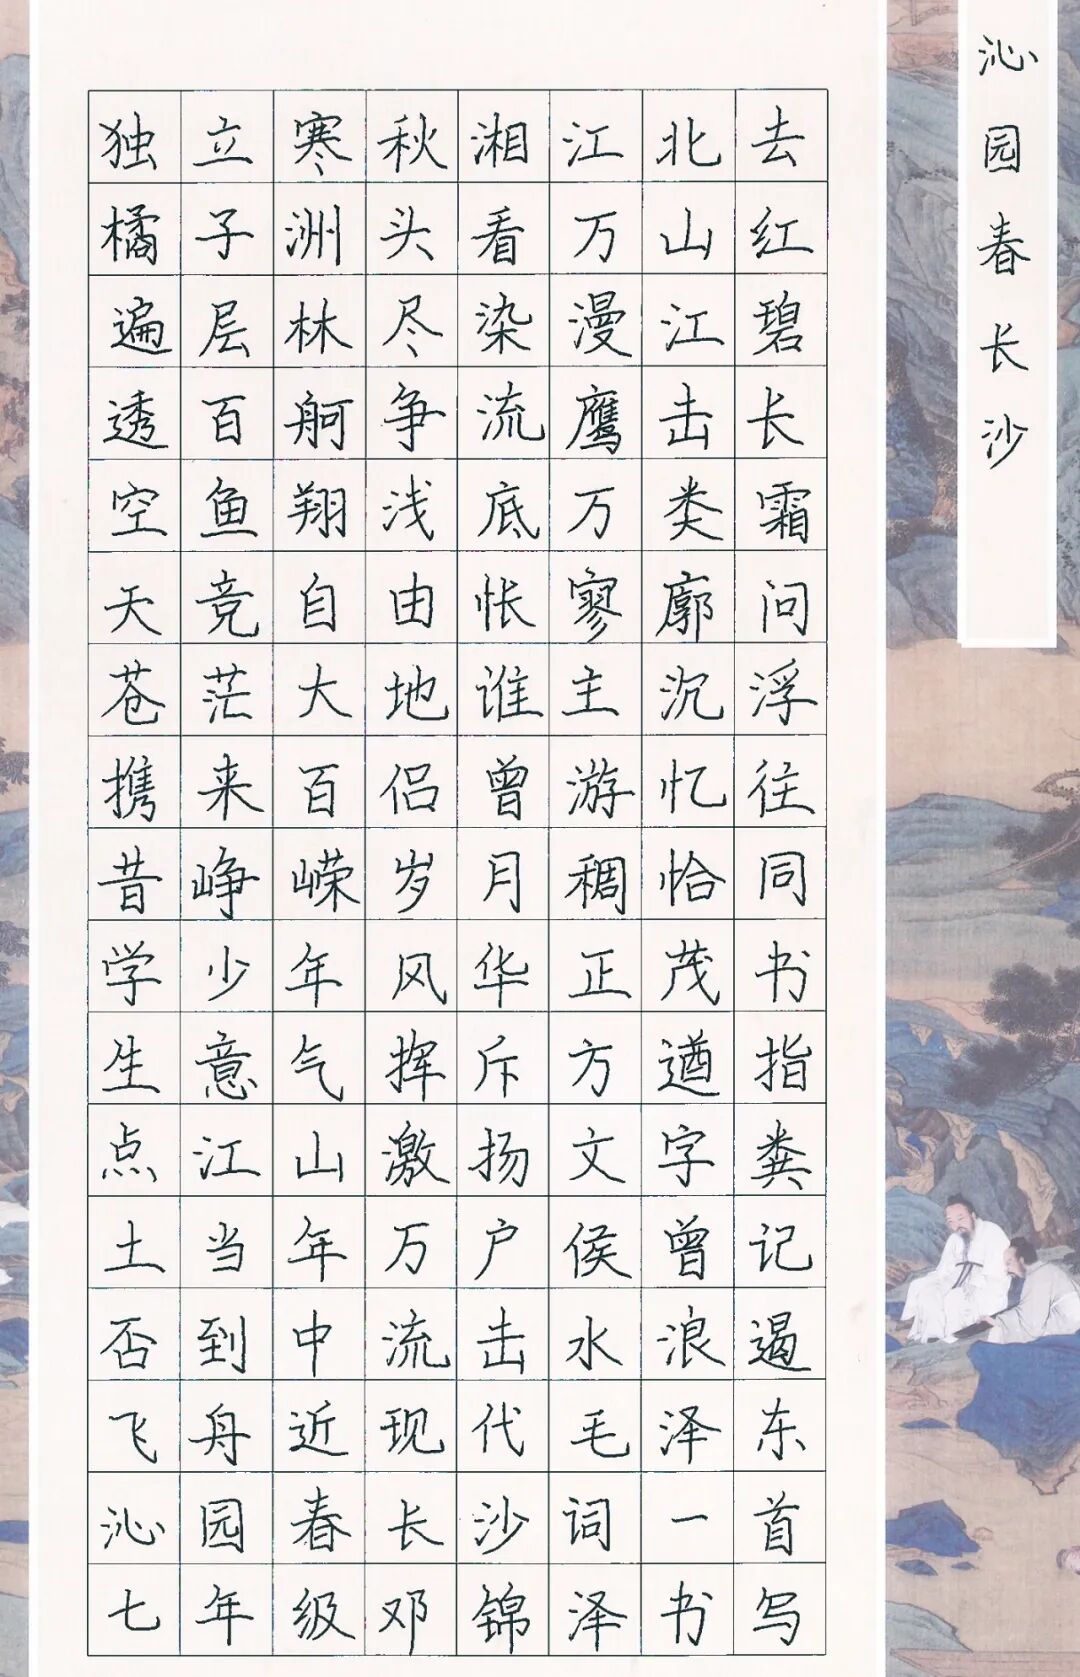 沁园春长沙
独立寒秋湘江北去
橘子洲头看万山红
遍层林尽染漫江碧
透百舸争流鹰击长
空鱼翔浅底万类霜
天竞自由怅寥廓问
苍茫大地谁主沉浮
携来百侣曾游忆往
昔峥嵘岁月稠恰同
学少年风华正茂书
生意气挥斥方遒指
点江山激扬文字粪
土当年万户侯曾记
否到中流击水浪遏
飞舟近现代毛泽东
沁园春长沙词一首
七年级邓锦泽书写